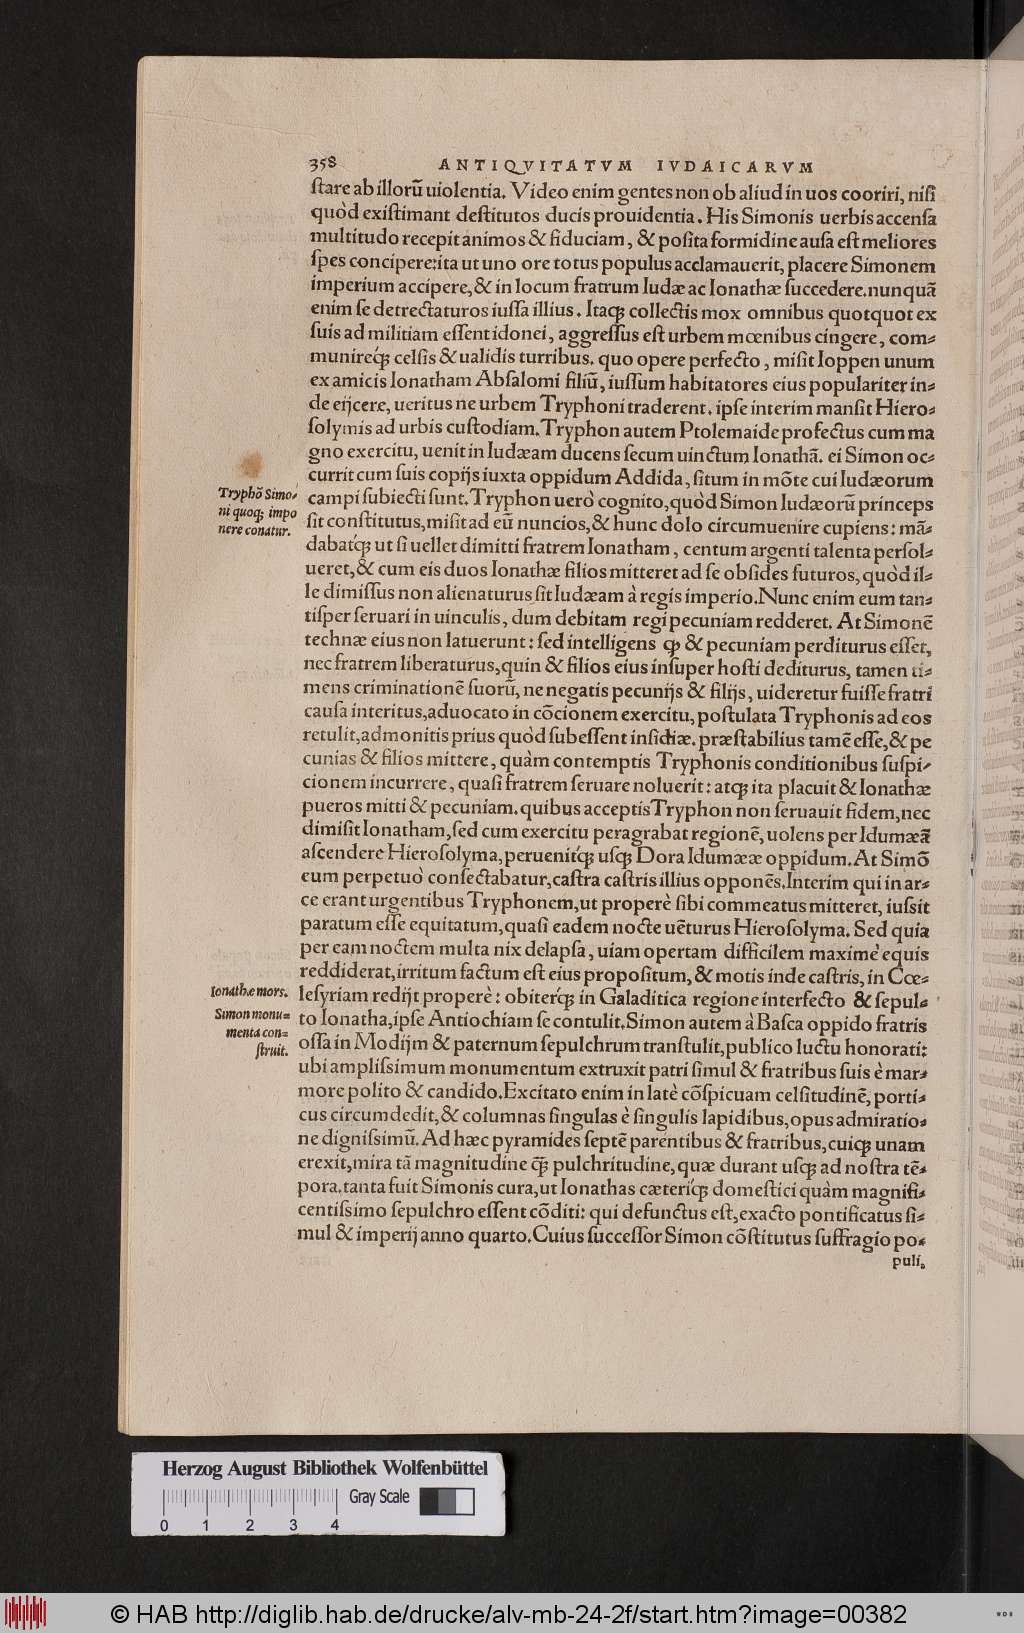 358 ANTIQVITATVM IVDAICARVM
ſtare ab illorũ uiolentia. Video enim gentes non ob aliud in uos cooriri, niſi
quòd exiſtimant deſtitutos ducis prouidentia. His Simonis uerbis accenſa
multitudo recepit animos & fiduciam, & poſita formidine auſa eſt meliores
ſpes concipere: ita ut uno ore totus populus acclamauerit, placere Simonem
imperium accipere, & in locum fratrum Iudæ ac Ionathæ ſuccedere. nunquã
enim ſe detrectaturos iuſſa illius. Itaq́; collectis mox omnibus quotquot ex
ſuis ad militiam eſſent idonei, aggreſſus eſt urbem mœnibus cingere, com-
munireq́; celſis & ualidis turribus. quo opere perfecto, miſit Ioppen unum
ex amicis Ionatham Abſalomi filiũ, iuſſum habitatores eius populariter in-
de eijcere, ueritus ne urbem Tryphoni traderent. ipſe interim manſit Hiero-
ſolymis ad urbis cuſtodiam. Tryphon autem Ptolemaide profectus cum ma
gno exercitu, uenit in Iudæam ducens ſecum uinctum Ionathã. ei Simon oc-
currit cum ſuis copijs iuxta oppidum Addida, ſitum in mõte cui Iudæorum
Tryphõ Simo-
ni quoq; impo
nere conatur.
campi ſubiecti ſunt. Tryphon uerò cognito, quòd Simon Iudæorũ princeps
ſit conſtitutus, miſit ad eũ nuncios, & hunc dolo circumuenire cupiens: mã-
dabatq́; ut ſi uellet dimitti fratrem Ionatham, centum argenti talenta perſol-
ueret, & cum eis duos Ionathæ filios mitteret ad ſe obſides futuros, quòd il-
le dimiſſus non alienaturus ſit Iudæam à regis imperio. Nunc enim eum tan-
tiſper ſeruari in uinculis, dum debitam regi pecuniam redderet. At Simonẽ
technæ eius non latuerunt: ſed intelligens ꝙ & pecuniam perditurus eſſet,
nec fratrem liberaturus, quin & filios eius inſuper hoſti dediturus, tamen ti-
mens criminationẽ ſuorũ, ne negatis pecunijs & filijs, uideretur fuiſſe fratri
cauſa interitus, aduocato in cõcionem exercitu, poſtulata Tryphonis ad eos
retulit, admonitis prius quòd ſubeſſent inſidiæ. præſtabilius tamẽ eſſe, & pe
cunias & filios mittere, quàm contemptis Tryphonis conditionibus ſuſpi-
cionem incurrere, quaſi fratrem ſeruare noluerit: atq; ita placuit & Ionathæ
pueros mitti & pecuniam. quibus acceptis Tryphon non ſeruauit fidem, nec
dimiſit Ionatham, ſed cum exercitu peragrabat regionẽ, uolens per Idumæã
aſcendere Hieroſolyma, peruenitq́; uſq; Dora Idumææ oppidum. At Simõ
eum perpetuò conſectabatur, caſtra caſtris illius opponẽs. Interim qui in ar-
ce erant urgentibus Tryphonem, ut properè ſibi commeatus mitteret, iuſsit
paratum eſſe equitatum, quaſi eadem nocte uẽturus Hieroſolyma. Sed quia
per eam noctem multa nix delapſa, uiam opertam difficilem maximè equis
reddiderat, irritum factum eſt eius propoſitum, & motis inde caſtris, in Cœ-
Ionathæ mors.
leſyriam redijt properè: obiterq́; in Galaditica regione interfecto & ſepul-
Simon monu-
menta con-
ſtruit.
to Ionatha, ipſe Antiochiam ſe contulit. Simon autem à Baſca oppido fratris
oſſa in Modijm & paternum ſepulchrum tranſtulit, publico luctu honorati:
ubi ampliſsimum monumentum extruxit patri ſimul & fratribus ſuis è mar-
more polito & candido. Excitato enim in latè cõſpicuam celſitudinẽ, porti-
cus circumdedit, & columnas ſingulas è ſingulis lapidibus, opus admiratio-
ne digniſsimũ. Ad hæc pyramides ſeptẽ parentibus & fratribus, cuiq; unam
erexit, mira tã magnitudine q̃; pulchritudine, quæ durant uſq; ad noſtra tẽ-
pora. tanta fuit Simonis cura, ut Ionathas cæteriq́; domeſtici quàm magnifi-
centiſsimo ſepulchro eſſent cõditi: qui defunctus eſt, exacto pontificatus ſi-
mul & imperij anno quarto. Cuius ſucceſſor Simon cõſtitutus ſuffragio po-
puli,
Herzog August Bibliothek Wolfenbüttel
Gray Scale
0 1 2 3 4
© HAB http://diglib.hab.de/drucke/alv-mb-24-2f/start.htm?image=00382